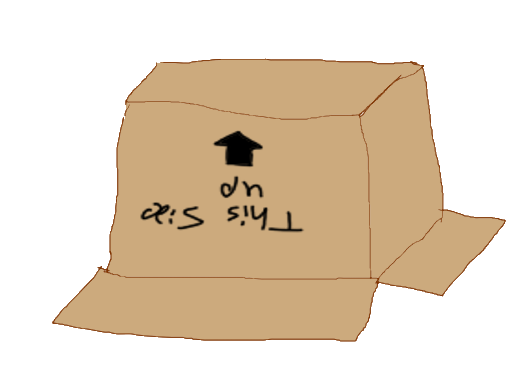 This Side
up